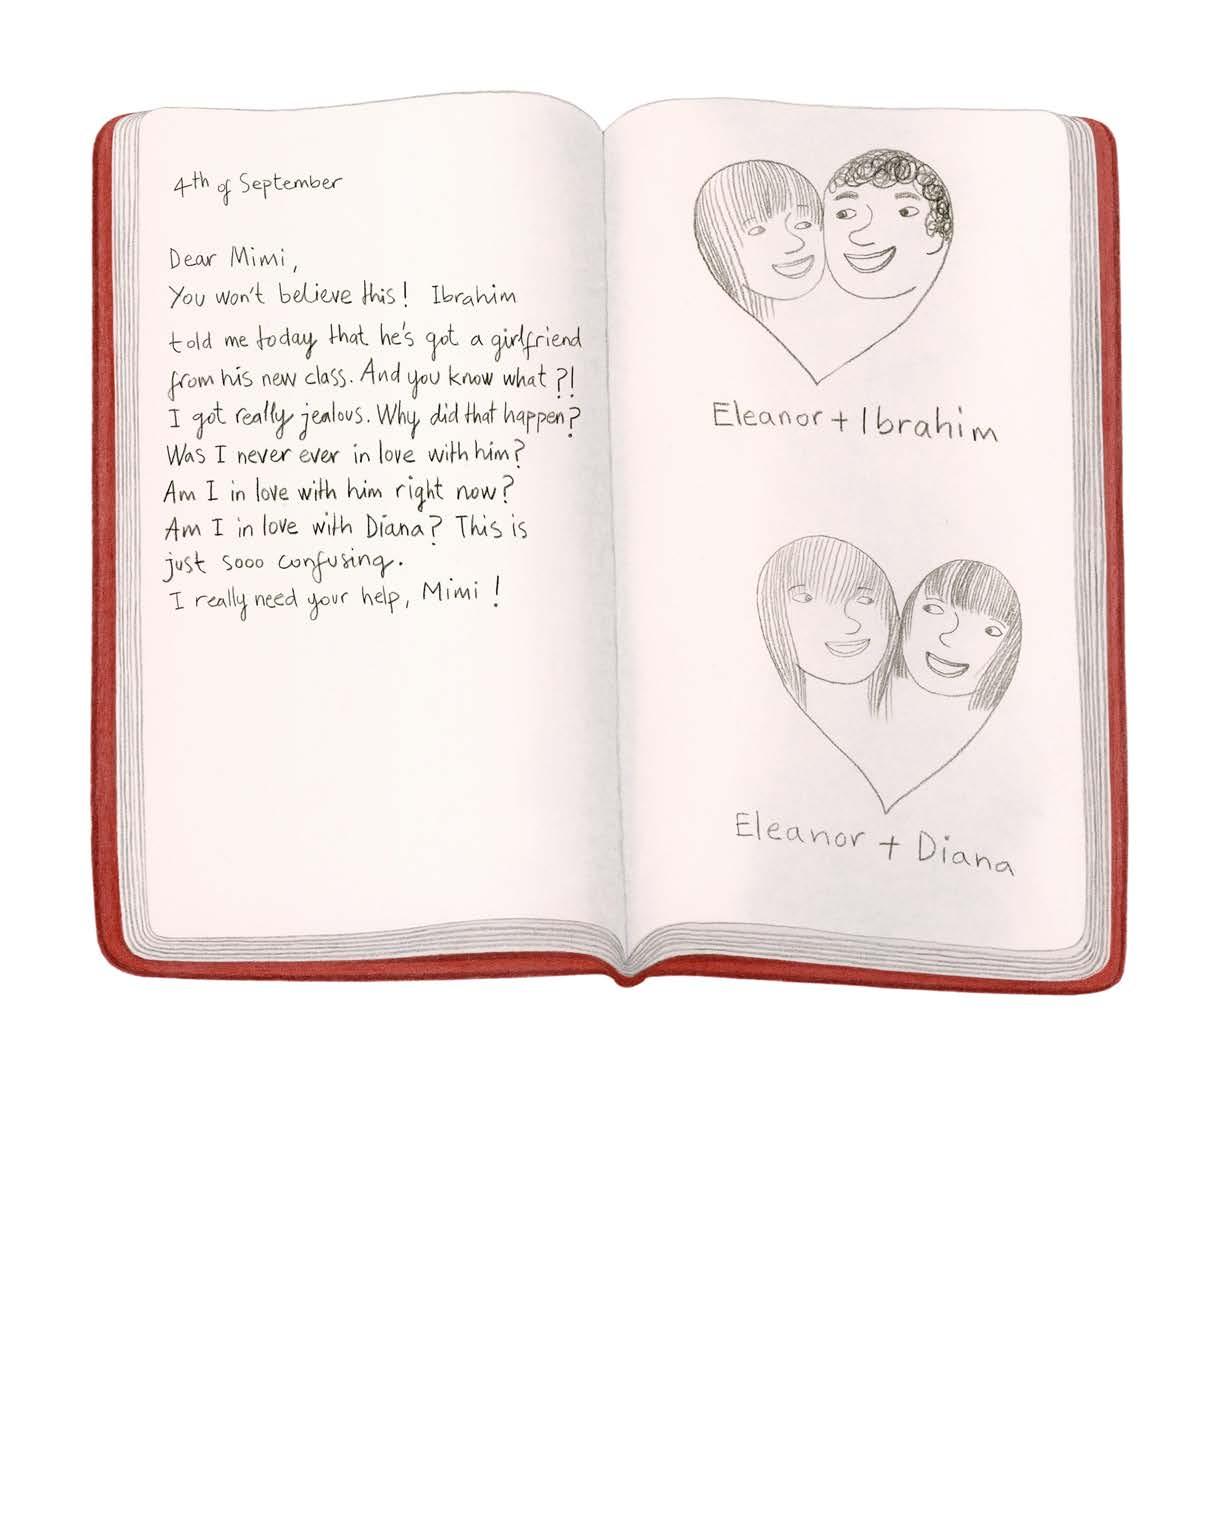 4th of September
Dear Mimi,
You won't believe this! Ibrahim
told me today that he's got a girlfriend
from his new class. And you know what?!
I got really jealous. Why did that happen?
Was I never ever in love with him?
Am I in love with him right now?
Am I in love with Diana? This is
just sooo confusing.
I really need your help, Mimi!
Eleanor + Ibrahim
Eleanor + Diana